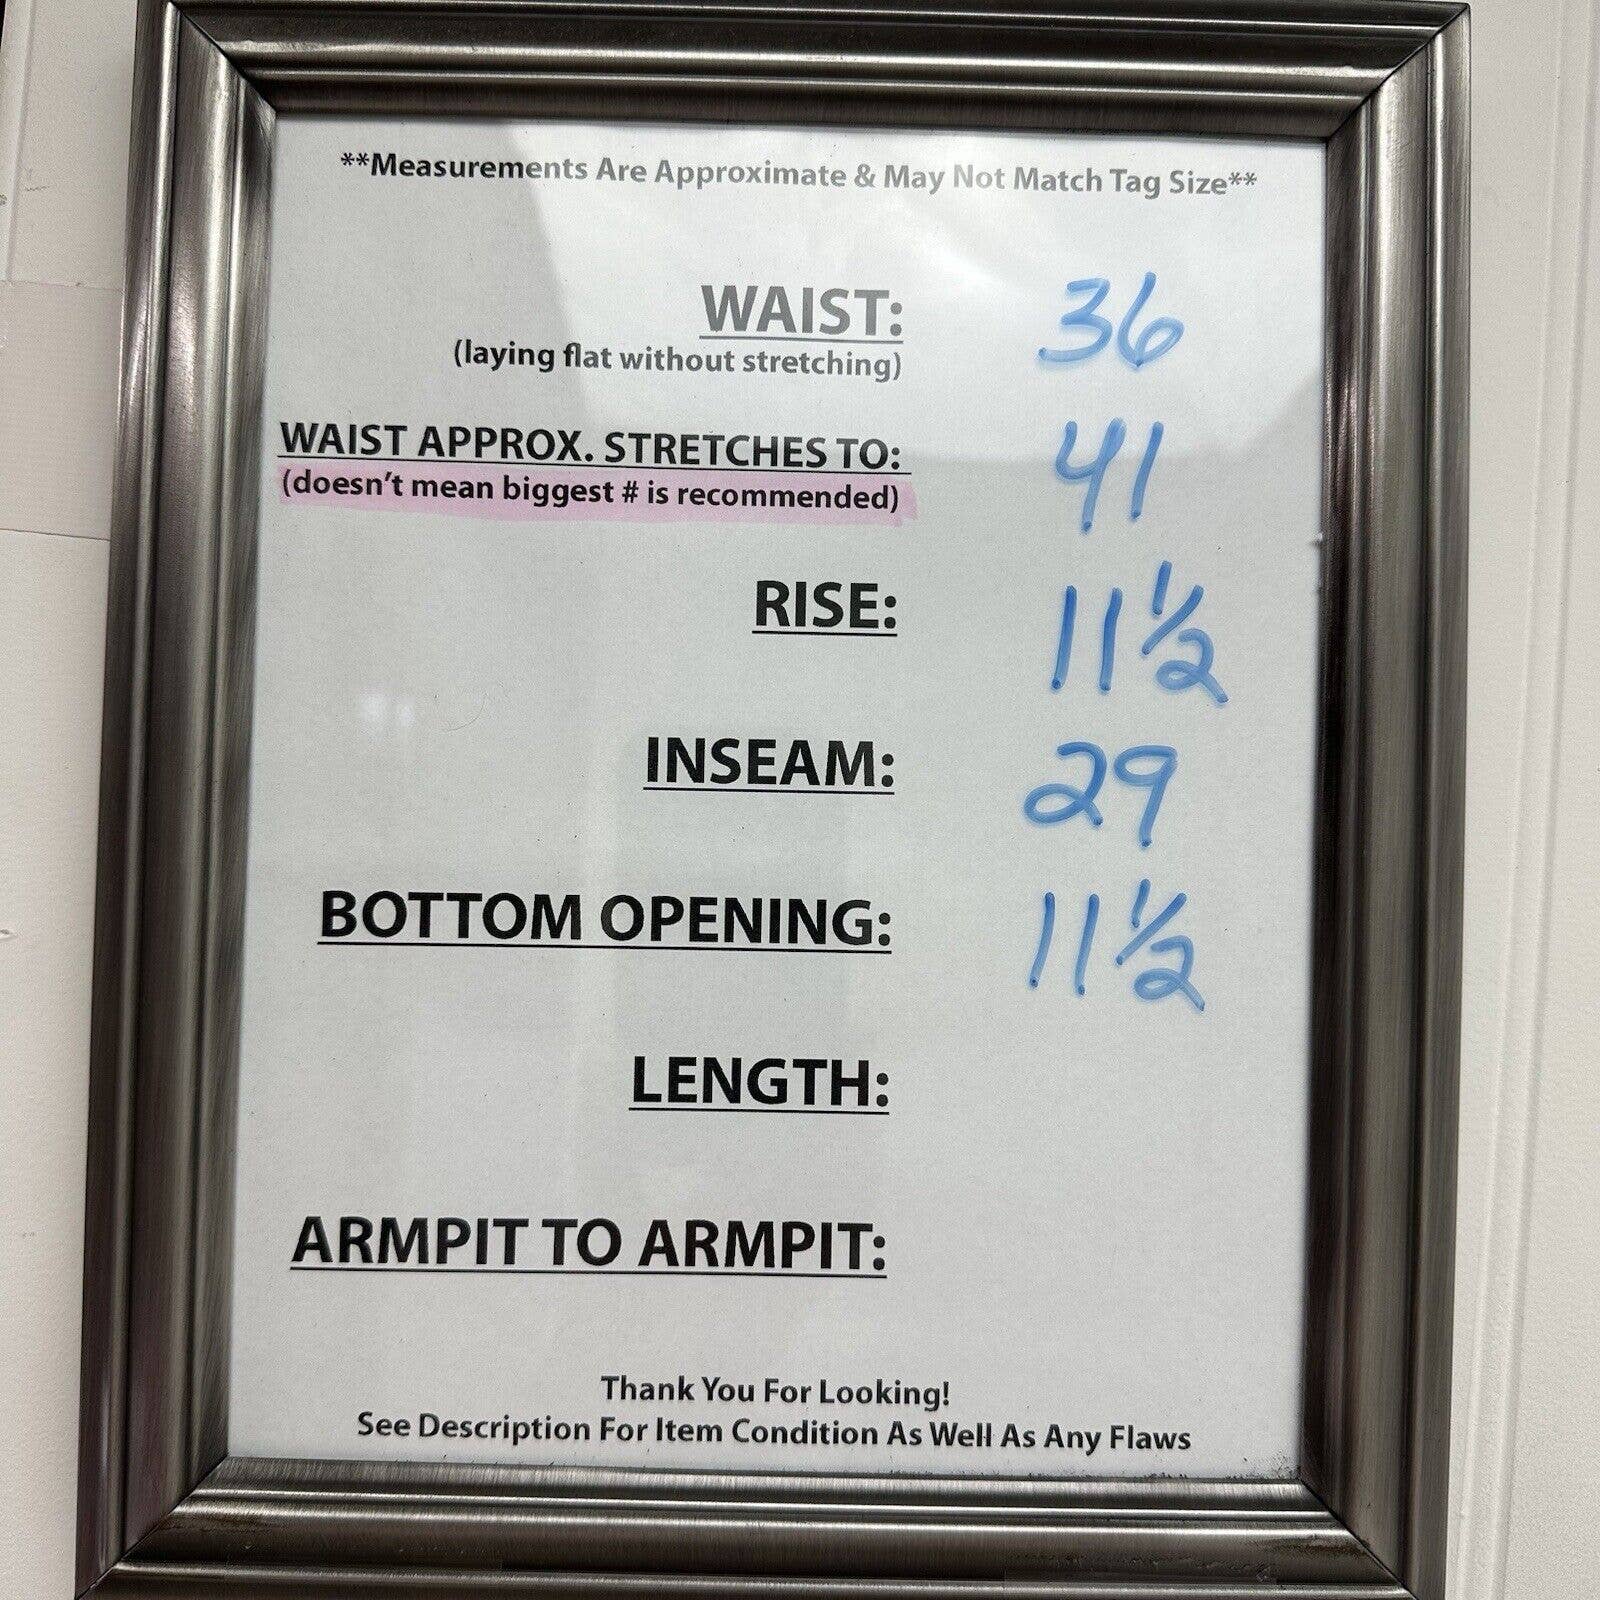 **Measurements Are Approximate & May Not Match Tag Size**
WAIST: 36
(laying flat without stretching)
WAIST APPROX. STRETCHES TO: 41
(doesn't mean biggest # is recommended)
RISE: 11 1/2
INSEAM: 29
BOTTOM OPENING: 11 1/2
LENGTH:
ARMPIT TO ARMPIT:
Thank You For Looking!
See Description For Item Condition As Well As Any Flaws